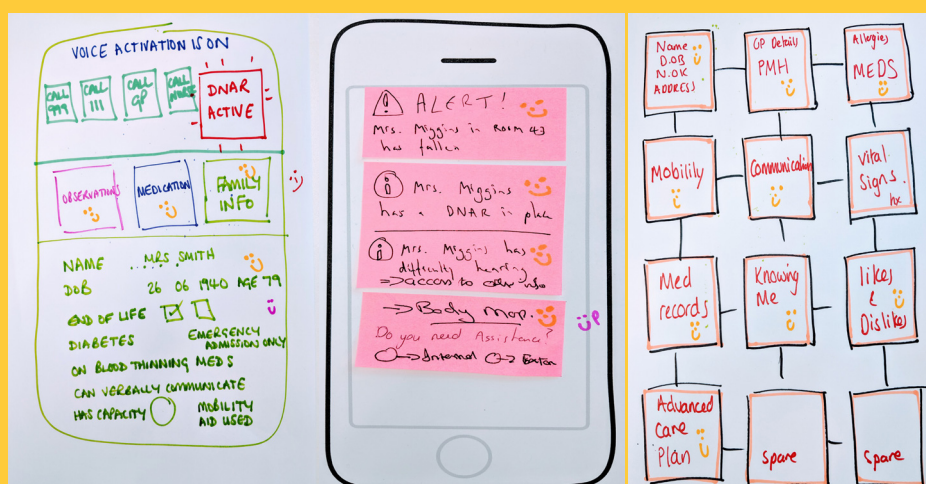 VOICE ACTIVATION IS ON
CALL 999
CALL 111
CALL GP
CALL NURSE
DNAR
ACTIVE
OBSERVATIONS
MEDICATION
FAMILY
INFO
NAME MRS SMITH
DOB 26 06 1940 AGE 79
END OF LIFE
DIABETES
EMERGENCY
ADMISSION ONLY
ON BLOOD THINNING MEDS
CAN VERBALLY COMMUNICATE
HAS CAPACITY
MOBILITY
AID USED
ALERT!
Mrs. Miggins in Room 43
has fallen
Mrs. Miggins
has a DNAR in place
Mrs. Miggins has
difficulty hearing
to other info
Body Map.
Do you need Assistance?
Internal
Name
D.O.B
N.OK
ADDRESS
GP Details
PMH
Allergies
MEDS
Mobility
Communication
Vital
Signs.
hx
Med
records
Knowing
Me
likes
&
Dislikes
Advanced
Care
Plan
Spare
Spare